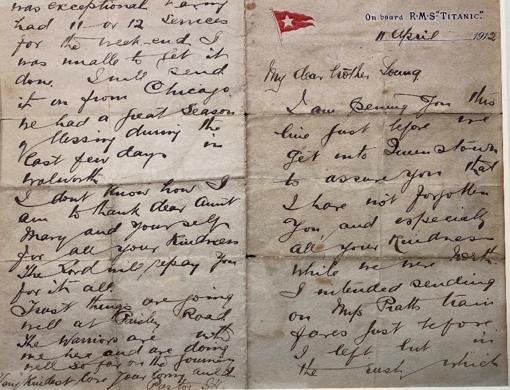 On board R.M.S. "TITANIC."
11 April 1912
My dear brother Young
I am penning you this
line just before we
get into Queenstown
to assure you that
I have not forgotten
you, and especially
all your kindness
while we were North.
I intended sending
on Mrs Pratts train
fares just before
I left but in
the rush which
was exceptional having
had 11 or 12 Services
for the week-end I
was unable to get it
done. I will send
it on from Chicago.
We had a great Season
of blessing during the
last few days in
Walworth
I don't know how I
am to thank dear Aunt
Mary and yourself
for all your kindness
The Lord will repay you
for it all
Trust things are going
well at Paisley Road
The Warriors are with
me here and are doing
well so far on the journey
Very kindest love your loving auld
Pastor J.H.